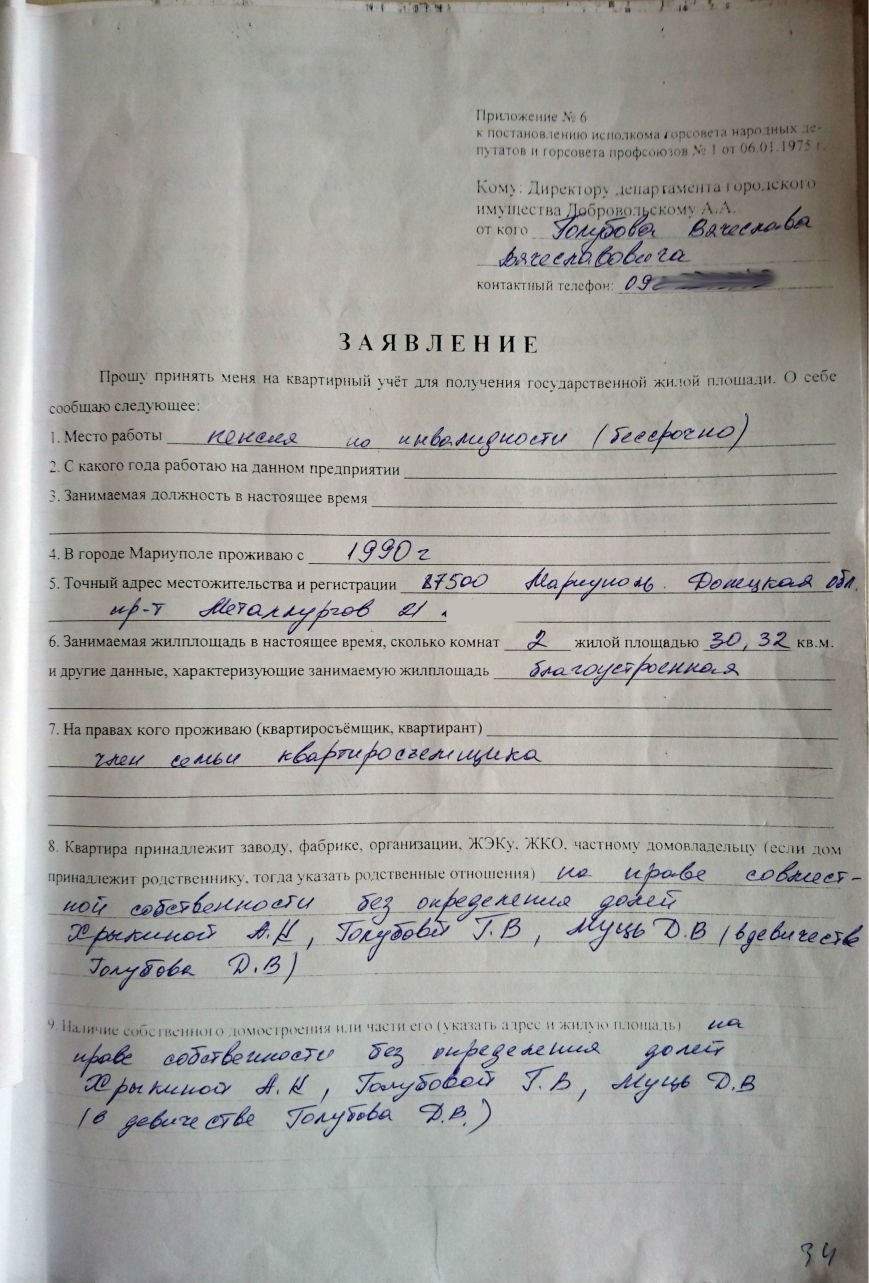 Приложение № 6
к постановлению исполкома горсовета народных де-
путатов и горсовета профсоюзов № 1 от 06.01.1975 г.
Кому: Директору департамента городского
имущества Добровольскому А.А.
от кого Голубова Вячеслава
Вячеславовича
контактный телефон: 09
ЗАЯВЛЕНИЕ
Прошу принять меня на квартирный учёт для получения государственной жилой площади. О себе
сообщаю следующее:
1. Место работы пенсия по инвалидности (бессрочно)
2. С какого года работаю на данном предприятии
3. Занимаемая должность в настоящее время
4. В городе Мариуполе проживаю с 1990 г
5. Точный адрес местожительства и регистрации 87500 Мариуполь. Донецкая обл.
пр-т Металлургов
6. Занимаемая жилплощадь в настоящее время, сколько комнат 2 жилой площадью 30,32 кв.м.
и другие данные, характеризующие занимаемую жилплощадь благоустроенная
7. На правах кого проживаю (квартиросъёмщик, квартирант)
член семьи квартиросъемщика
8. Квартира принадлежит заводу, фабрике, организации, ЖЭКу, ЖКО, частному домовладельцу (если дом
принадлежит родственнику, тогда указать родственные отношения) на праве совмест-
ной собственности без определения долей
Хрыкиной А.Н, Голубовой Т.В, Муць Д.В (в девичестве
Голубова Д.В)
9. Наличие собственного домостроения или части его (указать адрес и жилую площадь) на
праве собственности без определения долей
Хрыкиной А.Н, Голубовой Т.В, Муць Д.В
(в девичестве Голубова Д.В.)
34